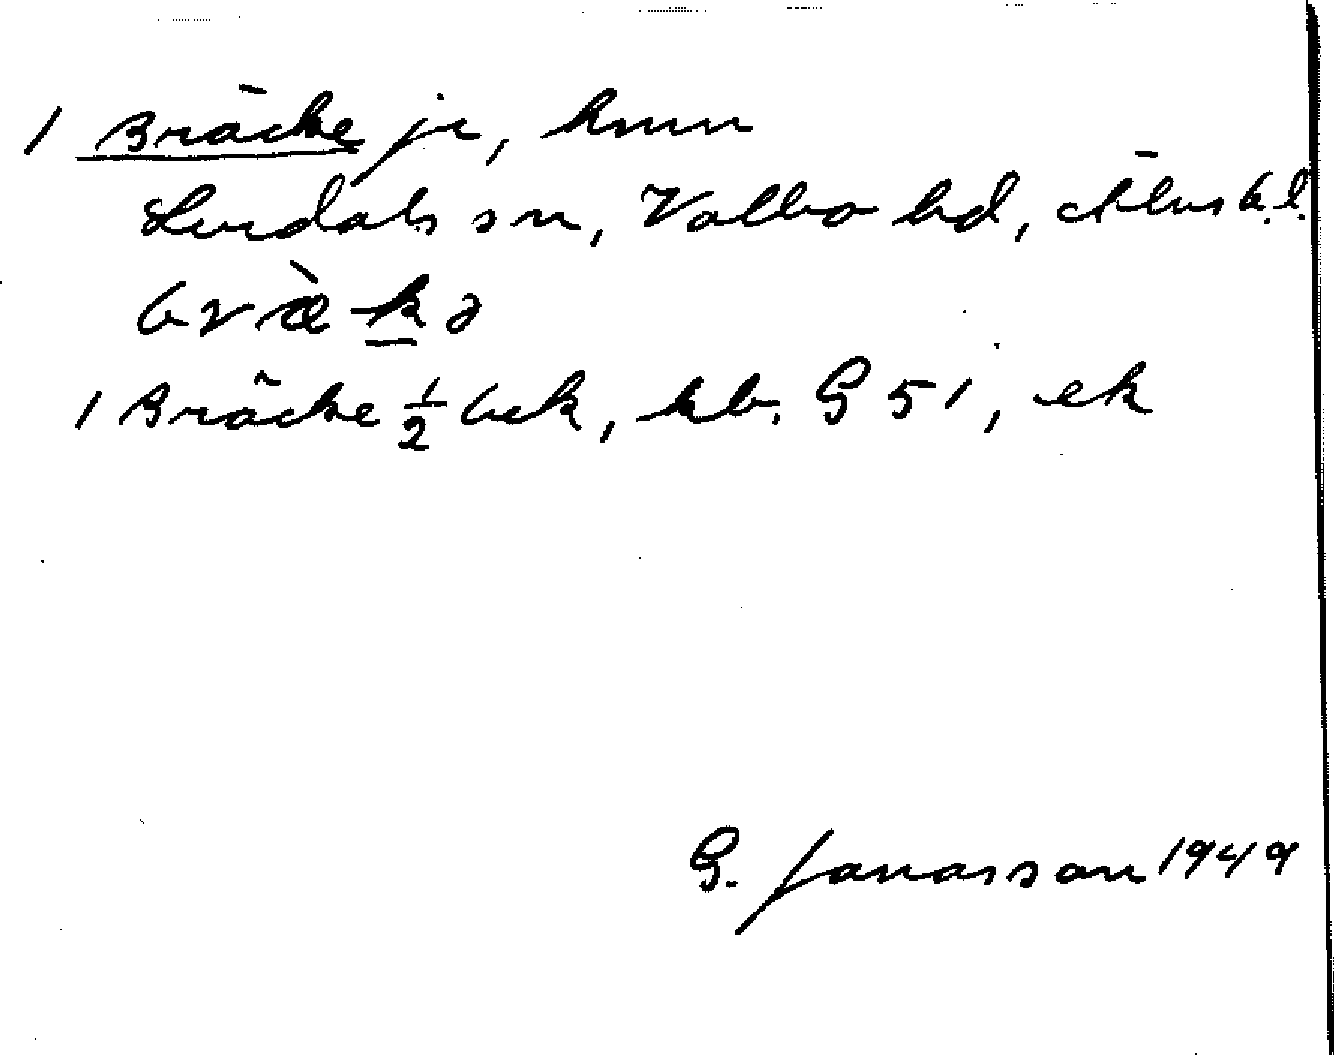 1 Bräcke je, hmn
Lerdals sn, Valbo hd, Älvsb. l.
bræ̀kə
1 Bräcke 1/2 bek, kb. G 51, ek
G. Jonasson 1949